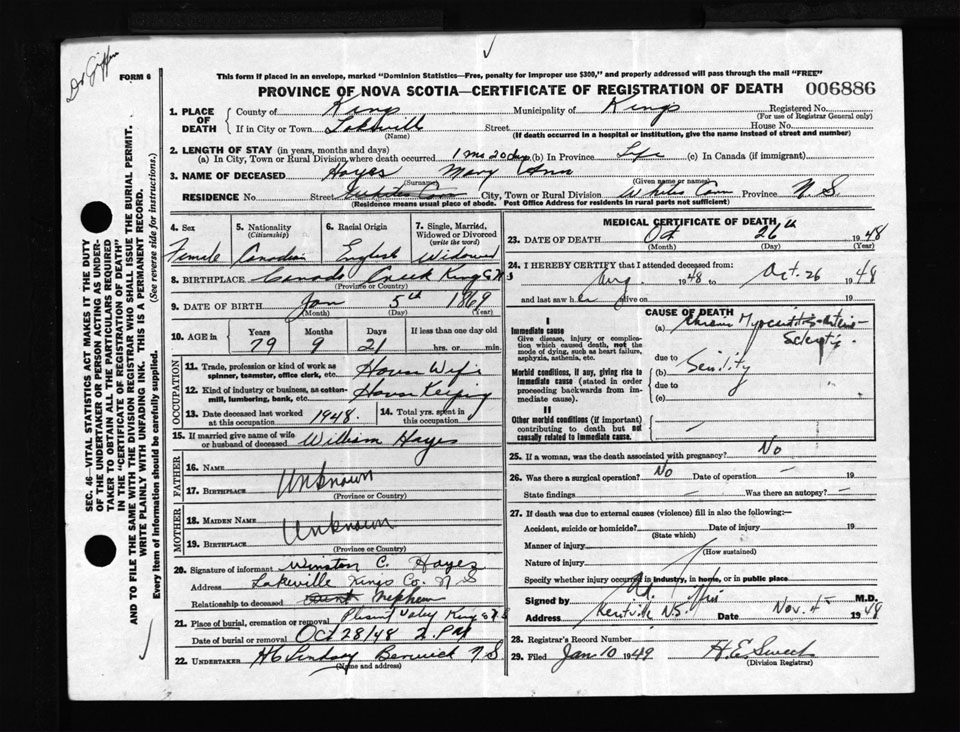 Dr Giffin
FORM 6
This form if placed in an envelope, marked "Dominion Statistics—Free, penalty for improper use $300," and properly addressed will pass through the mail "FREE"
PROVINCE OF NOVA SCOTIA—CERTIFICATE OF REGISTRATION OF DEATH 006886
SEC. 46—VITAL STATISTICS ACT MAKES IT THE DUTY
OF THE UNDERTAKER OR PERSON ACTING AS UNDER-
TAKER TO OBTAIN ALL THE PARTICULARS REQUIRED
IN THE "CERTIFICATE OF REGISTRATION OF DEATH"
AND TO FILE THE SAME WITH THE DIVISION REGISTRAR WHO SHALL ISSUE THE BURIAL PERMIT.
WRITE PLAINLY WITH UNFADING INK. THIS IS A PERMANENT RECORD.
Every item of Information should be carefully supplied. (See reverse side for instructions.)
1. PLACE OF DEATH
County of Kings Municipality of Kings Registered No.
(For use of Registrar General only)
If in City or Town Lakeville Street House No.
(Name) (If death occurred in a hospital or institution, give the name instead of street and number)
2. LENGTH OF STAY (in years, months and days)
(a) In City, Town or Rural Division where death occurred 1 mo 20 days (b) In Province Life (c) In Canada (if immigrant)
3. NAME OF DECEASED Hayes Mary Ann
(Surname) (Given name or names)
RESIDENCE No. Street City, Town or Rural Division Province N. S.
(Residence means usual place of abode. Post Office Address for residents in rural parts not sufficient)
4. Sex 5. Nationality (Citizenship) 6. Racial Origin 7. Single, Married, Widowed or Divorced (write the word)
Female Canadian English Widowed
8. BIRTHPLACE Canada Creek Kings N.S
(Province or Country)
9. DATE OF BIRTH Jan 5th 1869
(Month) (Day) (Year)
10. AGE in Years Months Days If less than one day old
79 9 21 hrs. or min.
OCCUPATION
11. Trade, profession or kind of work as spinner, teamster, office clerk, etc. House Wife
12. Kind of industry or business, as cotton-mill, lumbering, bank, etc. House Keeping
13. Date deceased last worked at this occupation 1948. 14. Total yrs. spent in this occupation
15. If married give name of wife or husband of deceased William Hayes
FATHER
16. Name
17. BIRTHPLACE Unknown
(Province or Country)
MOTHER
18. MAIDEN NAME
19. BIRTHPLACE Unknown
(Province or Country)
20. Signature of informant Winston C. Hayes
Address Lakeville Kings Co. N S
Relationship to deceased Aunt Nephew
21. Place of burial, cremation or removal
Date of burial or removal Oct 28/48 2. PM
22. UNDERTAKER HC Lindsay Berwick N. S.
(Name and address)
MEDICAL CERTIFICATE OF DEATH
23. DATE OF DEATH Oct 26th 1948
(Month) (Day) (Year)
24. I HEREBY CERTIFY that I attended deceased from:
Aug. 1948 to Oct. 26 1948
and last saw her alive on 19
CAUSE OF DEATH
I
Immediate cause
Give disease, injury or complication which caused death, not the mode of dying, such as heart failure, asphyxia, asthenia, etc.
(a)
due to
Morbid conditions, if any, giving rise to immediate cause (stated in order proceeding backwards from immediate cause).
(b) Senility
due to
(c)
II
Other morbid conditions (if important) contributing to death but not causally related to immediate cause.
25. If a woman, was the death associated with pregnancy? No
26. Was there a surgical operation? No Date of operation — 19
State findings Was there an autopsy? —
27. If death was due to external causes (violence) fill in also the following:—
Accident, suicide or homicide? Date of injury 19
(State which)
Manner of injury
(How sustained)
Nature of injury
Specify whether injury occurred in industry, in home, or in public place
Signed by M.D.
Address Kentville N.S. Date Nov. 4 1948
28. Registrar's Record Number
29. Filed Jan 10 1949 H.E. Sweet
(Division Registrar)